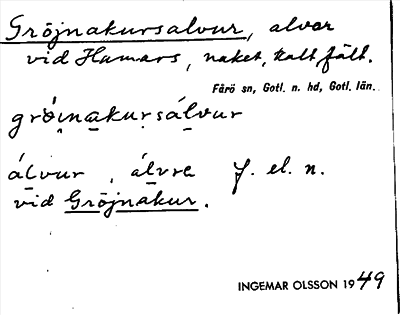 Gröjnakursalvur, alvar
vid Hamars, naket, kalt fält.
Fårö sn, Gotl. n. hd, Gotl. län.
gröi̯nakursálvur
álvur, álvre f. el. n.
vid Gröjnakur.
INGEMAR OLSSON 1949